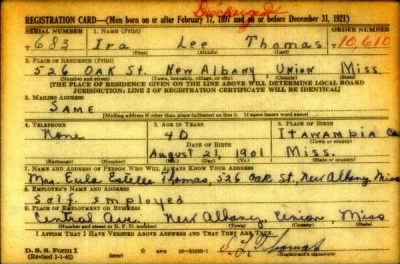 Discharged
REGISTRATION CARD—(Men born on or after February 17, 1897 and on or before December 31, 1921)
SERIAL NUMBER 1. NAME (Print) ORDER NUMBER
T 683 Ira Lee Thomas T 10,610
(First) (Middle) (Last)
2. PLACE OF RESIDENCE (Print)
526 Oak St. New Albany, Union Miss.
(Number and street) (Town, township, village, or city) (County) (State)
[THE PLACE OF RESIDENCE GIVEN ON THE LINE ABOVE WILL DETERMINE LOCAL BOARD
JURISDICTION; LINE 2 OF REGISTRATION CERTIFICATE WILL BE IDENTICAL]
3. MAILING ADDRESS
SAME
[Mailing address if other than place indicated on line 2. If same insert word same]
4. TELEPHONE 5. AGE IN YEARS 6. PLACE OF BIRTH
None 40 Itawambia Co
DATE OF BIRTH (Town or county)
August 21, 1901 Miss.
(Exchange) (Number) (Mo.) (Day) (Yr.) (State or country)
7. NAME AND ADDRESS OF PERSON WHO WILL ALWAYS KNOW YOUR ADDRESS
Mrs. Eula Estelle Thomas, 526 Oak St. New Albany Miss
8. EMPLOYER'S NAME AND ADDRESS
Self employed
9. PLACE OF EMPLOYMENT OR BUSINESS
Central Ave. New Albany Union, Miss
(Number and street or R. F. D. number) (Town) (County) (State)
I AFFIRM THAT I HAVE VERIFIED ABOVE ANSWERS AND THAT THEY ARE TRUE.
D. S. S. Form 1
(Revised 1-1-42) GPO Thomas
(Registrant's signature)